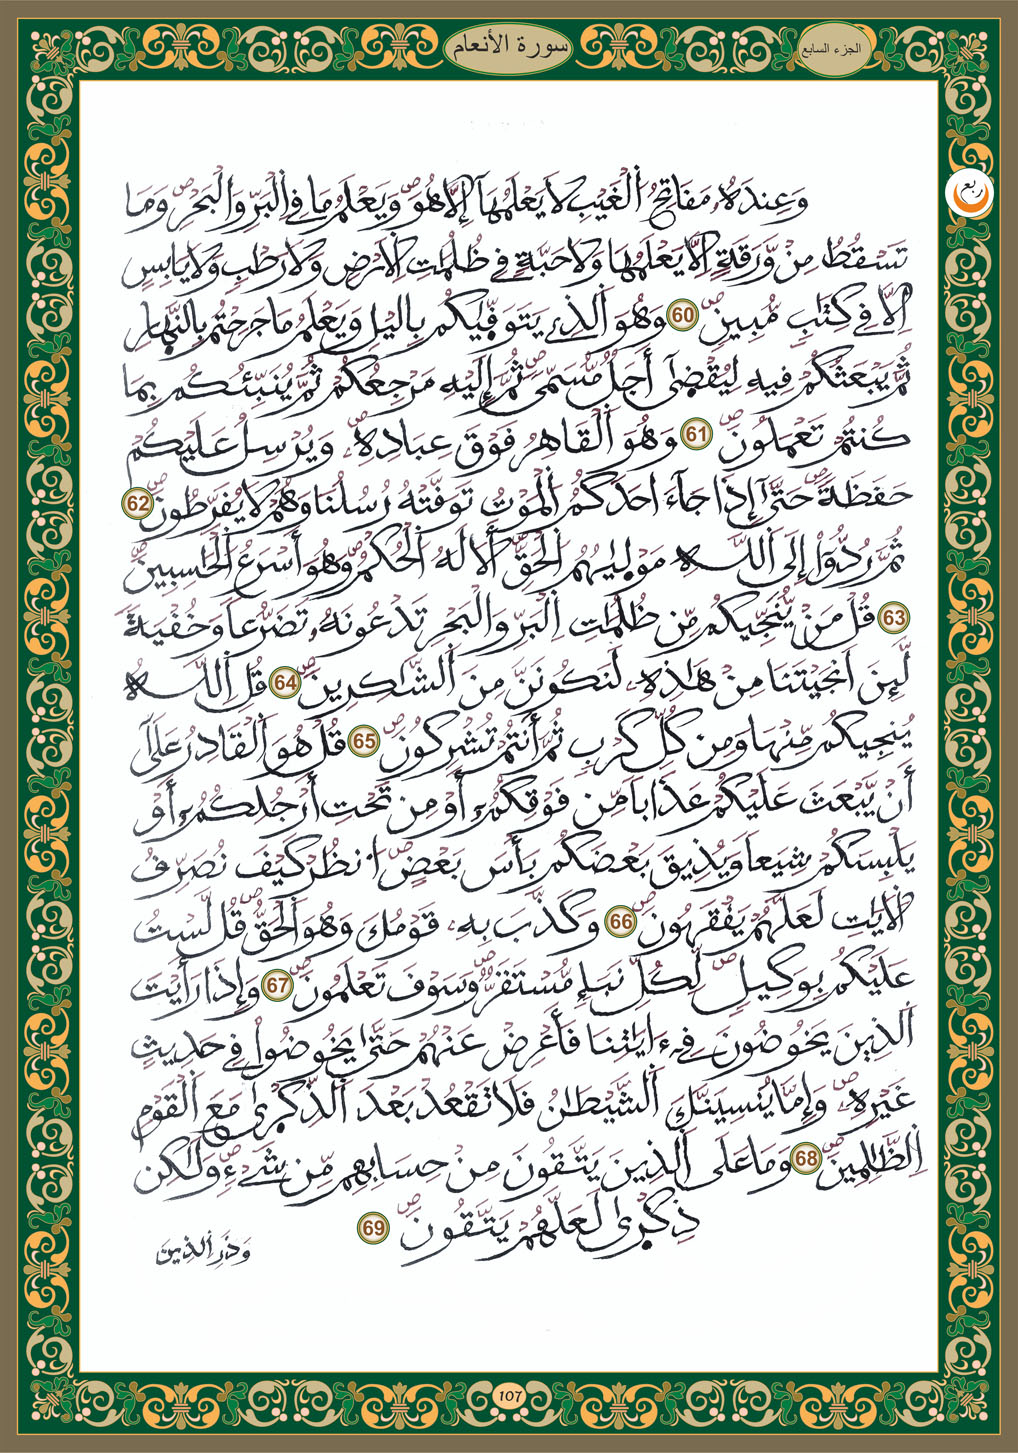 سورة الأنعام
الجزء السابع
ربع
وَعِندَهُۥ مَفَاتِحُ اُ۬لْغَيْبِ لَا يَعْلَمُهَآ إِلَّا هُوَۖ وَيَعْلَمُ مَا فِے اِ۬لْبَرِّ وَالْبَحْرِۖ وَمَا
تَسْقُطُ مِنْ وَّرَقَةٍ اِلَّا يَعْلَمُهَا وَلَا حَبَّةٖ فِے ظُلُمَٰتِ اِ۬لَارْضِ وَلَا رَطْبٖ وَلَا يَابِسٍ
اِلَّا فِے كِتَٰبٖ مُّبِينٖۖ 60 وَهُوَ اَ۬لذِے يَتَوَفّ۪يٰكُم بِاليْلِ وَيَعْلَمُ مَا جَرَحْتُم بِالنَّهارِ
ثُمَّ يَبْعَثُكُمْ فِيهِ لِيُقْض۪يٰٓ أَجَلٞ مُّسَمّيٗۖ ثُمَّ إِلَيْهِ مَرْجِعُكُمْ ثُمَّ يُنَبِّئُكُم بِمَا
كُنتُمْ تَعْمَلُونَۖ 61 وَهُوَ اَ۬لْقَاهِرُ فَوْقَ عِبَادِهِۦۖ وَيُرْسِلُ عَلَيْكُمْ
حَفَظَةًۖ حَتَّىٰٓ إِذَا جَآءَ احَدَكُمُ اُ۬لْمَوْتُ تَوَفَّتْهُ رُسُلُنَا وَهُمْ لَا يُفَرِّطُونَۖ 62
ثُمَّ رُدُّوٓاْ إِلَى اَ۬للَّهِ مَوْل۪يٰهُمُ اُ۬لْحَقِّۖ أَلَا لَهُ اُ۬لْحُكْمُۖ وَهُوَ أَسْرَعُ اُ۬لْحَٰسِبِينَۖ
63 قُلْ مَنْ يُّنَجِّيكُم مِّن ظُلُمَٰتِ اِ۬لْبَرِّ وَالْبَحْرِ تَدْعُونَهُۥ تَضَرُّعاٗ وَخُفْيَةٗ
لَّئِنَ اَنجَيْتَنَا مِنْ هَٰذِهِۦ لَنَكُونَنَّ مِنَ اَ۬لشَّٰكِرِينَۖ 64 قُلِ اِ۬للَّهُ
يُنجِيكُم مِّنْهَا وَمِن كُلِّ كَرْبٖ ثُمَّ أَنتُمْ تُشْرِكُونَۖ 65 قُلْ هُوَ اَ۬لْقَادِرُ عَلَىٰٓ
أَنْ يَّبْعَثَ عَلَيْكُمْ عَذَاباٗ مِّن فَوْقِكُمُۥٓ أَوْ مِن تَحْتِ أَرْجُلِكُمُۥٓ أَوْ
يَلْبِسَكُمْ شِيَعاٗ وَيُذِيقَ بَعْضَكُم بَأْسَ بَعْضٍۖ اُ۟نظُرْ كَيْفَ نُصَرِّفُ
اُ۬لَايَٰتِ لَعَلَّهُمْ يَفْقَهُونَۖ 66 وَكَذَّبَ بِهِۦ قَوْمُكَ وَهُوَ اَ۬لْحَقُّۖ قُل لَّسْتُ
عَلَيْكُم بِوَكِيلٖۖ لِّكُلِّ نَبَإٖ مُّسْتَقَرّٞۖ وَسَوْفَ تَعْلَمُونَۖ 67 وَإِذَا رَأَيْتَ
اَ۬لذِينَ يَخُوضُونَ فِےٓ ءَايَٰتِنَا فَأَعْرِضْ عَنْهُمْ حَتَّىٰ يَخُوضُواْ فِے حَدِيثٍ
غَيْرِهِۦۖ وَإِمَّا يُنسِيَنَّكَ اَ۬لشَّيْطَٰنُ فَلَا تَقْعُدْ بَعْدَ اَ۬لذِّكْر۪يٰ مَعَ اَ۬لْقَوْمِ
اِ۬لظَّٰلِمِينَۖ 68 وَمَا عَلَى اَ۬لذِينَ يَتَّقُونَ مِنْ حِسَابِهِم مِّن شَےْءٖۖ وَلَٰكِن
ذِكْر۪يٰ لَعَلَّهُمْ يَتَّقُونَۖ 69
وَذَرِ اِ۬لذِينَ
107